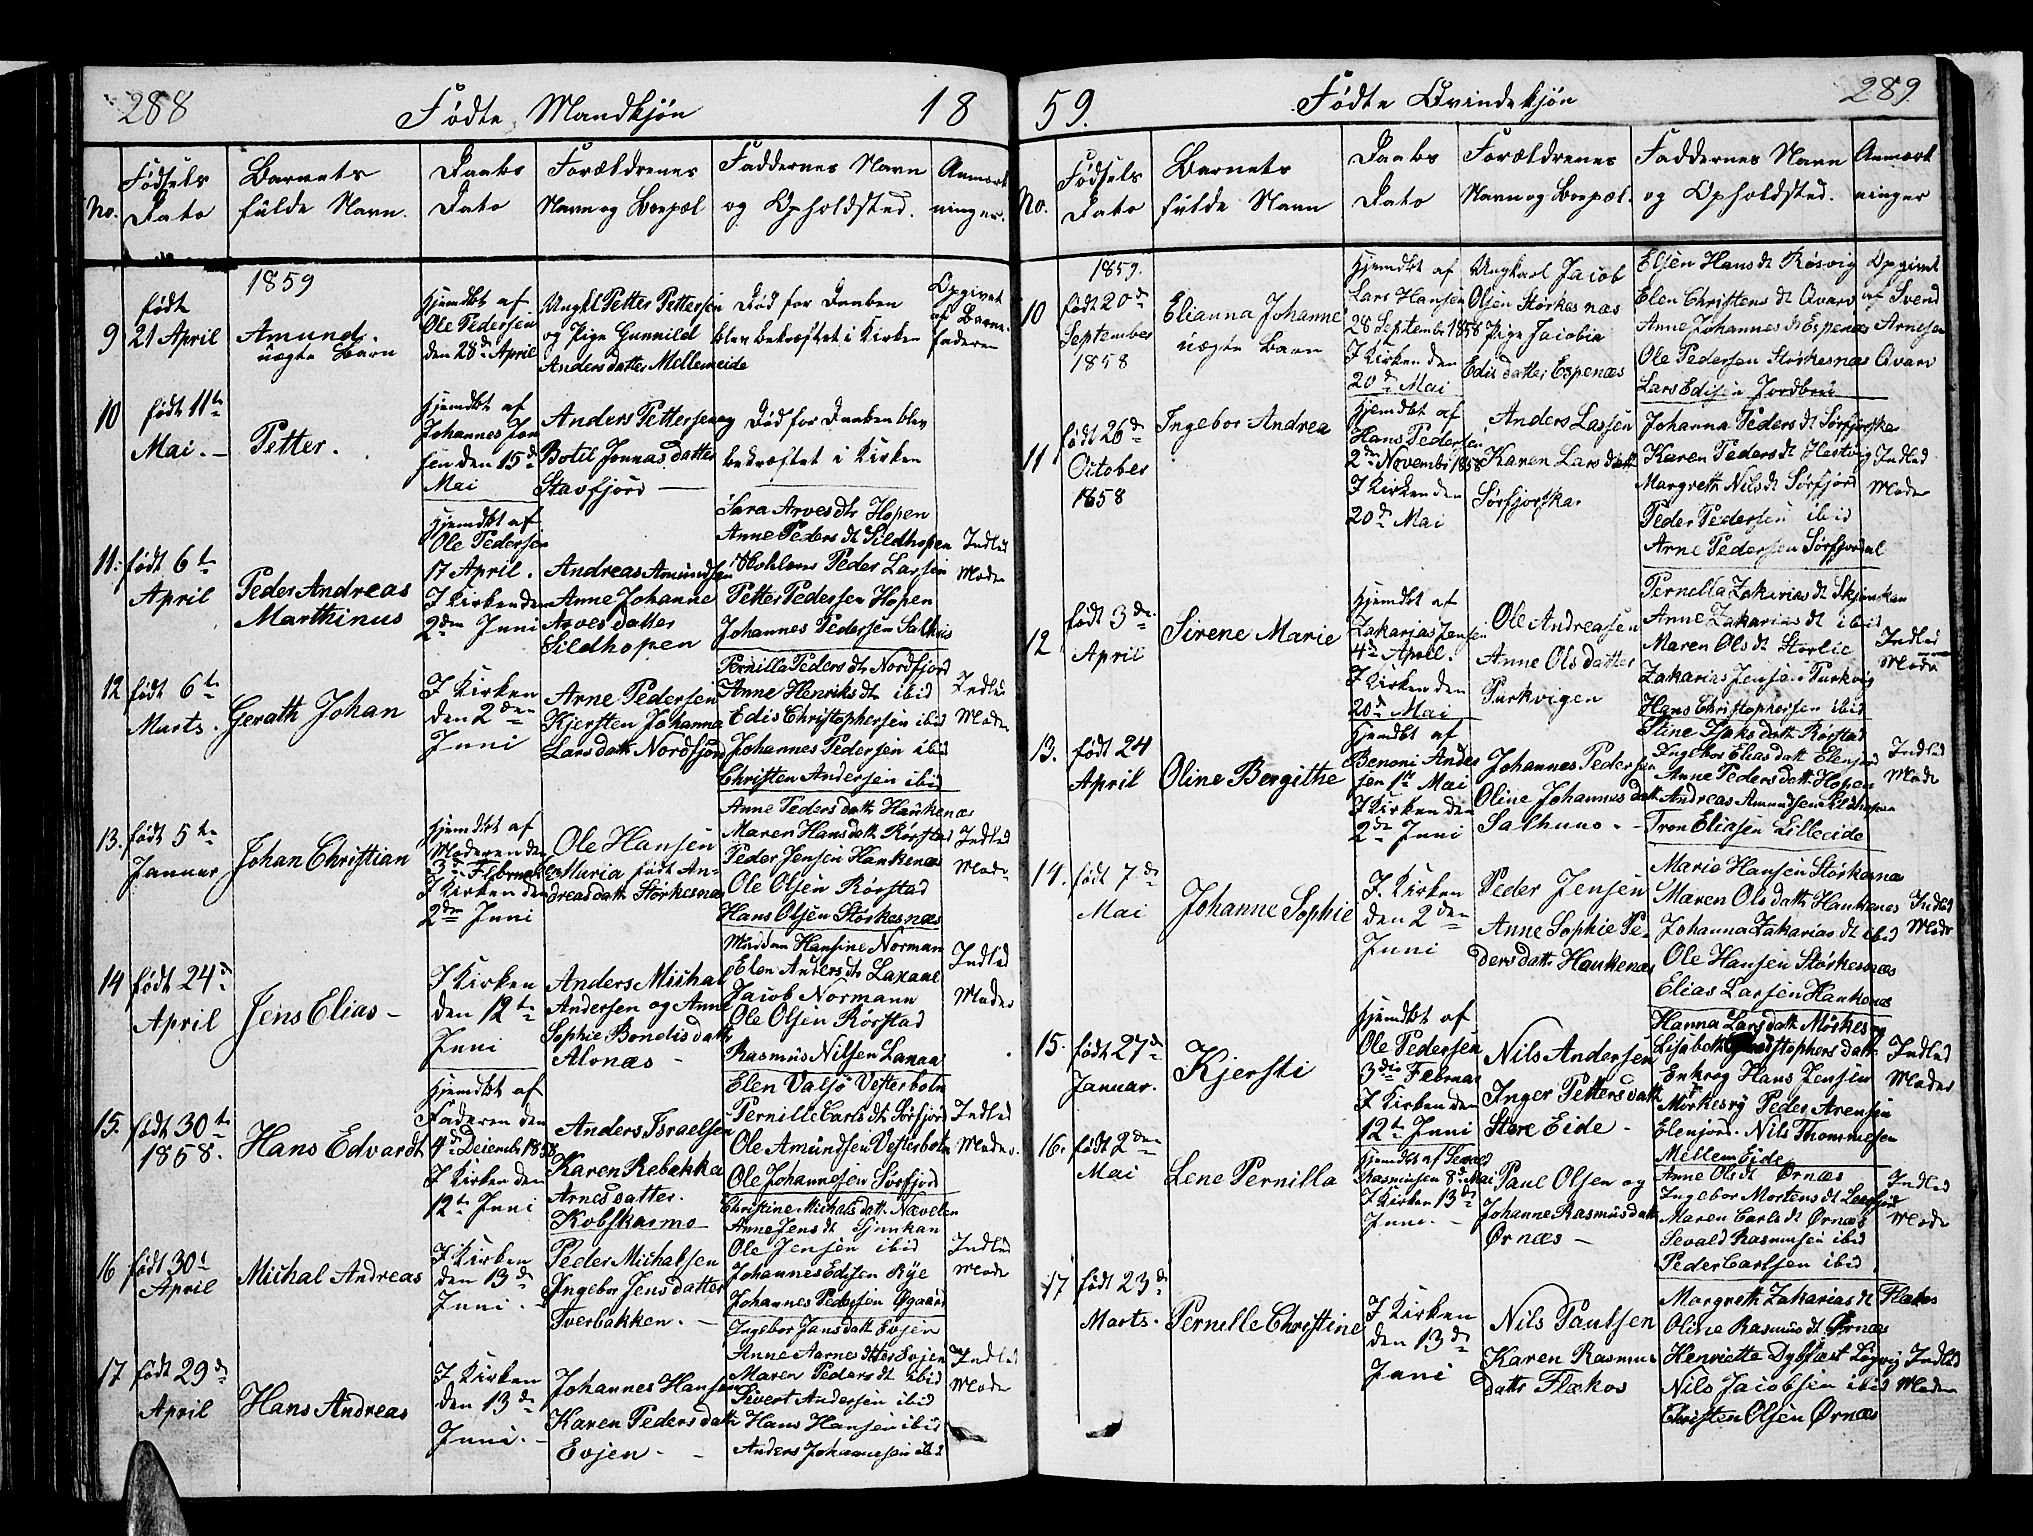 288 Fødte Mandkjøn 18
No.
Fødsels Dato
Barnets fulde Navn.
Daabs Dato
Forældrenes Navn og Bopæl
Faddernes Navn og Opholdsted.
Anmærkninger.
1859
9
født
21 April
Amund.
uægte Barn
Hjemdbt af
Ole Pedersen
den 28de April
Ungkl Petter Pettersen
og Pige Gunnild
Andersdatter Mellemeide
Død før Daaben
blev bekræftet i Kirken
Opgivet
af Barnefaderen
10
født 11te
Mai. -
Petter.
Hjemdbt af
Johannes Jonsen den 15de
Mai
Anders Pettersen og
Botel Jonnasdatter
Stavfjord -
Død før Daaben blev
bekræftet i Kirken
11.
født 6te
April
Peder Andreas
Marthinus
Hjemdbt af
Ole Pedersen
17 April.
I Kirken den
2den Juni
Andreas Amundsen
Anne Johanne
Arvesdatter
Sildhopen
Sara Arvesdtr Hopen
Anne Pedersdt Sildhopen
Peder Larsen
Petter Pedersen Hopen
Johannes Pedersen
Indled
Moder
12
født 6te
Marts.
Gerath Johan
I Kirken
den 2den
Juni
Arne Pedersen
Kjersten Johanna
Larsdatt Nordfjord
Pernilla Pedersdtr Nordfjord
Anne Henriksdtr ibid
Edis Christophersen ibid
Johannes Pedersen ibid
Christen Andersen ibid
Indled
Moder
13.
født 5te
Januar
Johan Christian
Hjemdbt af
Moderen den
3de Februar
I Kirken den
2den Juni
Ole Hansen
Maria født Andreasdatt Storkesnæs
Anne Pedersdatt Haukenæs
Maren Hansdatt Rørstad
Peder Jensen Haukenæs
Ole Olsen Rørstad
Hans Olsen Storkesnæs
Indled
Moder
14
født 24de
April
Jens Elias -
I Kirken
den 12te
Juni
Anders Michal
Andersen og Anne
Sophie Bonedisdatt
Alonæs -
Madam Hansine Norman
Elen Andersdtr Laxaae
Jacob Normann
Ole Olsen Rørstad
Rasmus Nilsen Laxaa
Indled
Moder
15.
født 30te
1858.
Hans Edvardt
Hjemdbt af
Faderen den
4de December 1858
I Kirken den
12te Juni
Anders Israelsen
Karen Rebekka
Arnesdatter.
Kobskarmo
Elen Valsø Vesterbotn
Pernille Carlsdt Sørfjord
Ole Amundsen Vesterbotn
Ole Johannesen Sørfjord
Christine Michalsdatt Nævelen
Indled
Moder
16
født 30te
April
Michal Andreas
I Kirken
den 13de
Juni.
Peder Michalsen
Ingebor Jensdatter
Tverbakken. -
Anne Jensdt
Ole Jensen ibid
Johannes Edisen Rye
Johannes Pedersen Øgaard
Indled
Moder
17
født 29de
April
Hans Andreas
I Kirken
den 13de
Juni. -
Johannes Hansen
Karen Pedersdatt
Evjen -
Ingebor Jansdatt Evjen
Anne Aarnesdtter Evjen
Maren Pedersdt ibid
Sivert Andersen ibid
Hans Hansen ibid
Anders Johannesen ibid
Indled
Moder
59. Fødte Qvindekjøn 289.
No.
Fødsels Dato
Barnets fulde Navn
Daabs Dato
Forældrenes Navn og Bopæl.
Faddernes Navn og Opholdsted.
Anmærkninger
1859.
10
født 20de
September
1858
Elianna Johanne
uægte Barn
Hjemdbt af
Lars Hansen
28 Septembr 1858
I Kirken den
20de Mai
Ungkarl Jacob
Olsen Storkesnæs
Pige Jacobia
Edisdatter Espenæs
Elsen Hansdt Røsvig
Elen Christensdt Qvarv
Anne Johannesdt Espenæs
Ole Pedersen Storkesnæs
Lars Edisen Jordbru
Opgivet
af Svend
Arnesen
Qvarv
11
født 26de
October
1858
Ingebor Andrea
Hjemdbt af
Hans Pedersen
2den Novembr 1858
I Kirken den
20de Mai
Anders Larsen
Karen Larsdatt
Sørfjorska.
Johanna Pedersdt Sørfjorska
Karen Pedersdt Hestvig
Margreth Nilsdt Sørfjord
Peder Pedersen ibid
Arne Pedersen Sørfjordal
Indled
Moder
12
født 3die
April
Sirene Marie
Hjemdbt af
Zakarias Jensen
4de April.
I Kirken den
20de Mai
Ole Andreasen
Anne Olsdatter
Purkvigen
Pernella Zakariasdt
Anne Zakariasdt ibid
Maren Olsdt Storlie
Zakarias Jensen Purkvig
Hans Christophersen ibid
Indled
Moder
13.
født 24
April
Oline Bergithe
Hjemdbt af
Benoni Andersen 1ste Mai
I Kirken den
2de Juni
Johannes Pedersen
Oline Johannusdatt
Salhuus. -
Stine Isaksdatt Rørstad
Ingebor Eliasdatt Elenjord
Anne Pedersdatt Hopen
Andreas Amundsen Sildhopen
Tron Eliasen Lilleeide
Indled
Moder
14.
født 7de
Mai
Johanne Sophie
I Kirken
den 2den
Juni
Peder Jensen
Anne Sophie Pedersdatt Haukenæs
Marie Hansen Storkesnæs
Maren Olsdatt Haukenes
Johanna Zakariasdt ibid
Ole Hansen Storkesnæs
Elias Larsen Haukenæs
Indled
Moder
15.
født 27de
Januar.
Kjersti
Hjemdbt af
Ole Pedersen
3die Februar
I Kirken den
12te Juni
Nils Andersen
Inger Pettersdatt
Store Eide -
Hanna Larsdatt Mørkesry
Lisabeth Christophersdatt
Enkrog Hans Jensen
Mørkesry Peder Arensen
Elenjord. Nils Thommesen
Mellem Eide
Indled
Moder
16.
født 2den
Mai
Lene Pernilla
Hjemdbt af Sevald
Rasmusen 8de Mai
I Kirken 13de
Juni. -
Paul Olsen og
Johanne Rasmusdatt
Ørnæs -
Anne Olsdt Ørnæs
Ingebor Mortensdt
Maren Carlsdt Ørnæs
Sevald Rasmusen ibid
Peder Carlsen ibid
Indled
Moder
17
født 23de
Marts.
Pernille Christine
I Kirken
den 13de
Juni
Nils Paulsen
Karen Rasmusdatt Flækos
Margreth Zakariasdt Flækos
Oline Rasmusdt Ørnæs
Henriette Dybfæst Løgvig
Nils Jacobsen ibid
Christen Olsen Ørnæs
Indled
Moder